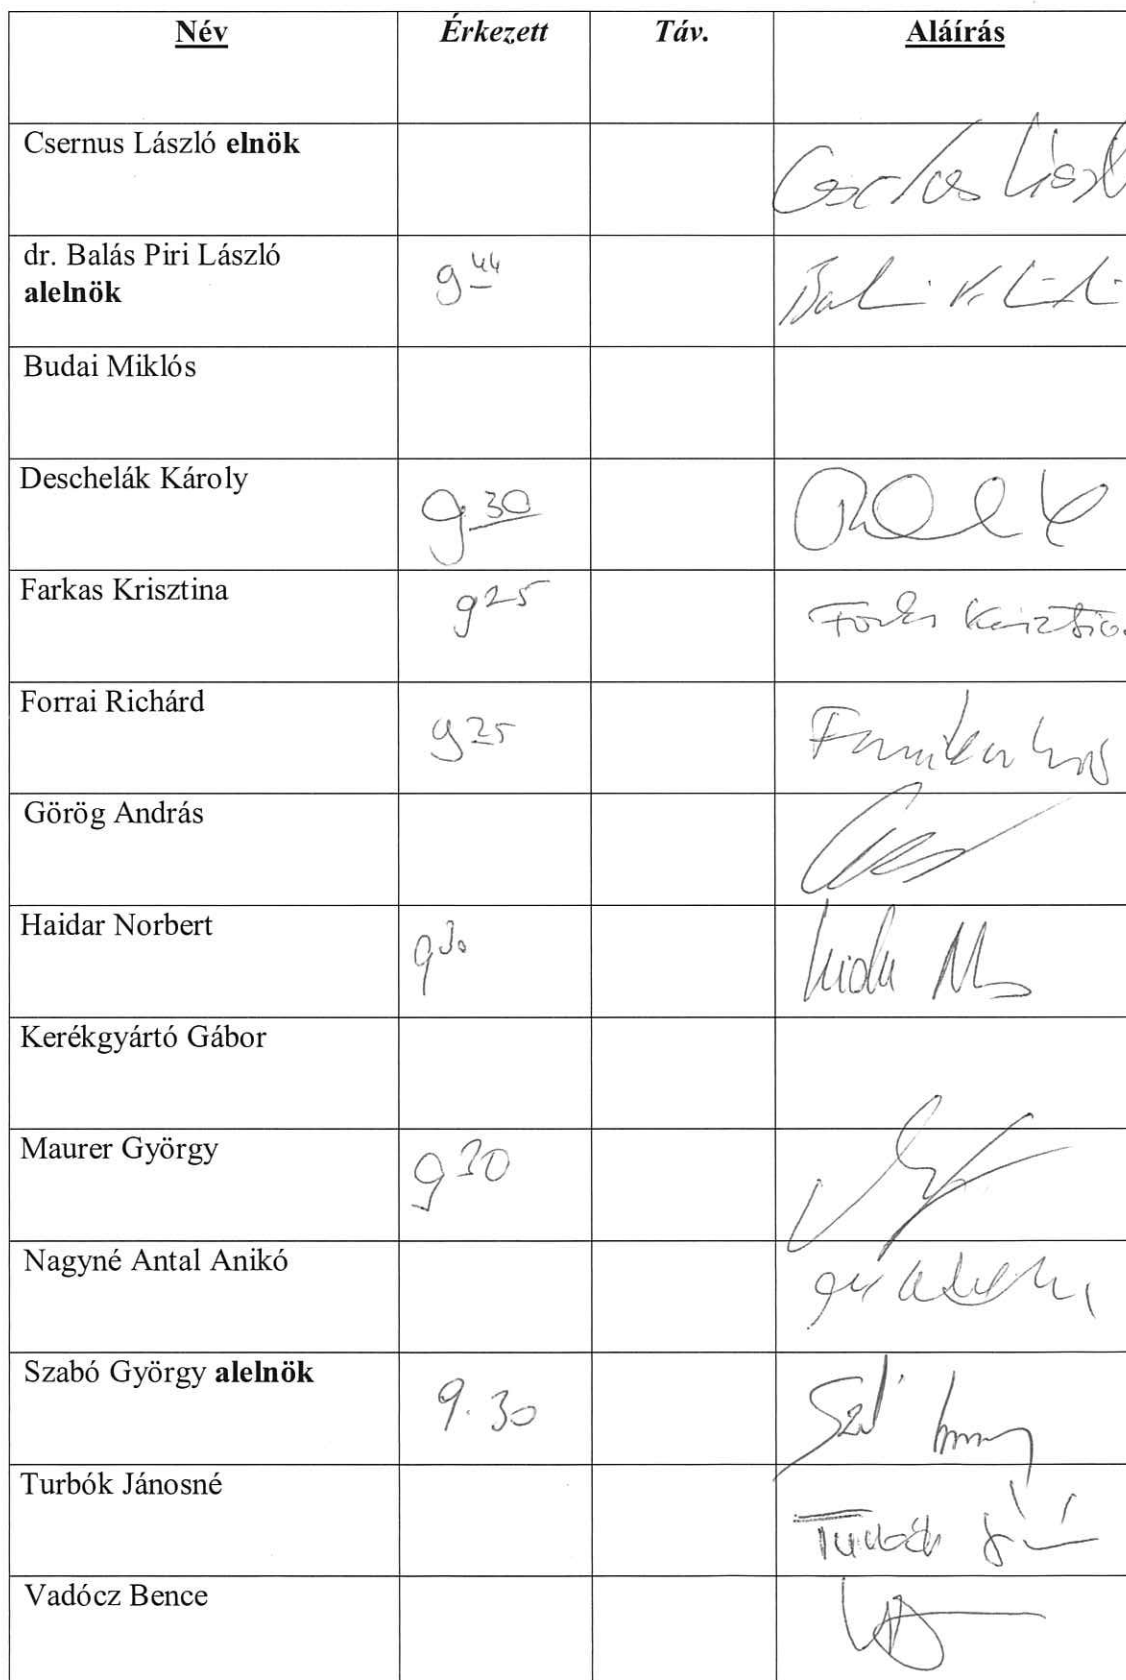 Név Érkezett Táv. Aláírás
Csernus László elnök
dr. Balás Piri László 9 44
alelnök
Budai Miklós
Deschelák Károly 9 30
Farkas Krisztina 9 25 Farkas Krisztina
Forrai Richárd 9 25
Görög András
Haidar Norbert 9 30
Kerékgyártó Gábor
Maurer György 9 30
Nagyné Antal Anikó
Szabó György alelnök 9.30
Turbók Jánosné
Vadócz Bence